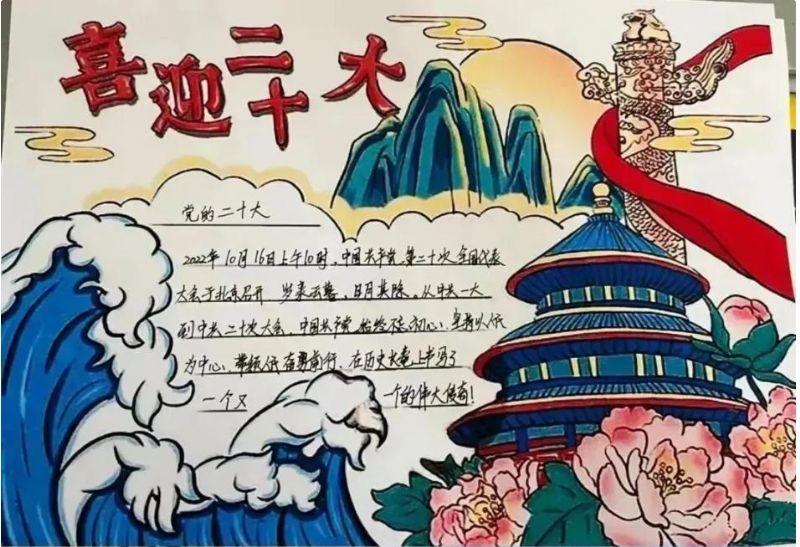 喜迎二十大
党的二十大
2022年10月16日上午10时，中国共产党第二十次全国代表
大会于北京召开。岁聿云暮，日月其除。从中共一大
到中共二十次大会，中国共产党始终不忘初心，坚持以人民
为中心，带领人民奋勇前行，在历史长卷上书写了
一个又 一个的伟大传奇！